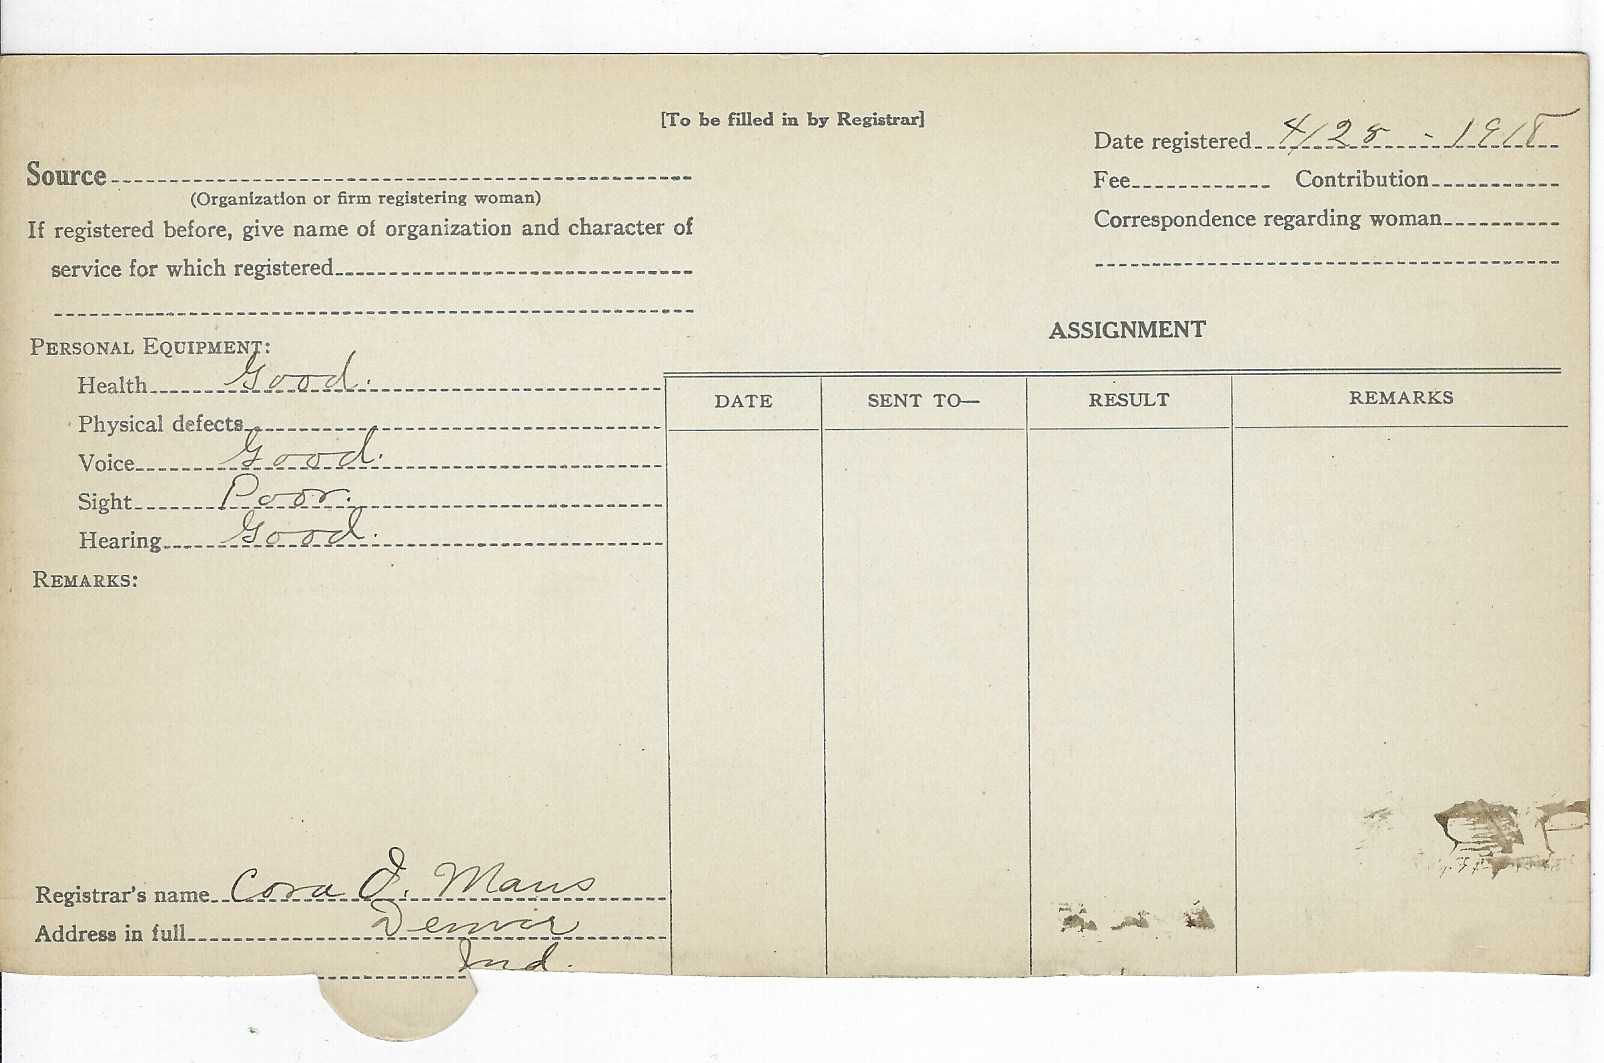 [To be filled in by Registrar]
Date registered 4/28 - 1918
Source
(Organization or firm registering woman)
Fee Contribution
If registered before, give name of organization and character of
service for which registered
Correspondence regarding woman
ASSIGNMENT
PERSONAL EQUIPMENT:
Health Good.
Physical defects
Voice Good.
Sight Poor.
Hearing Good.
REMARKS:
DATE SENT TO— RESULT REMARKS
Registrar's name Cora J. Maus
Address in full Denver
Ind.